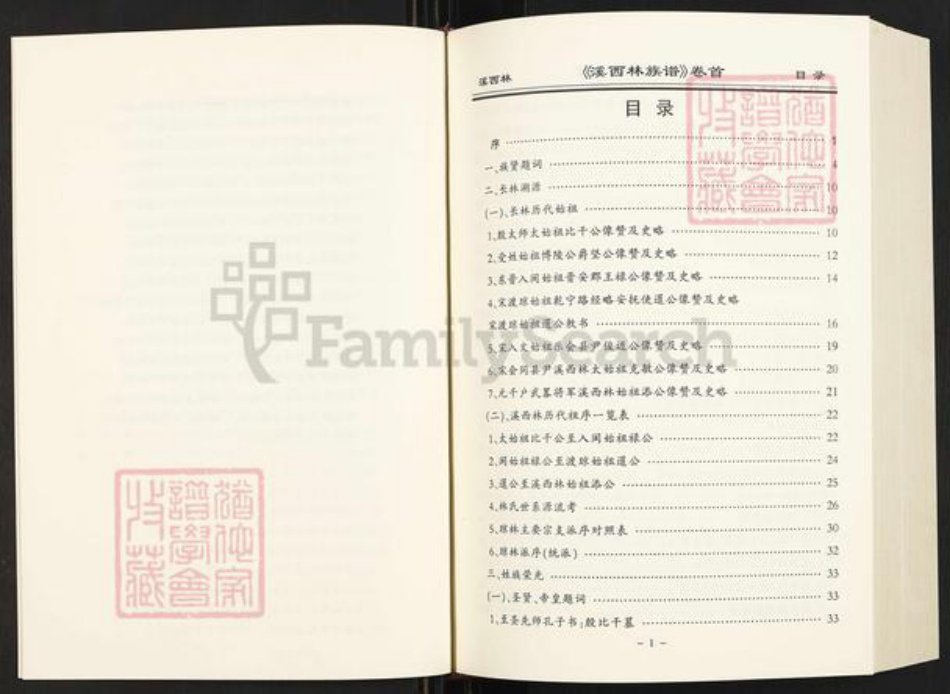 溪西林 《溪西林族谱》卷首 目 录
目 录
序 1
一、族贤题词 4
二、长林溯源 10
(一)、长林历代始祖 10
1、殷太师太始祖比干公像赞及史略 10
2、受姓始祖博陵公爵坚公像赞及史略 12
3、东晋入闽始祖晋安郡王禄公像赞及史略 14
4、宋渡琼始祖乾宁路经略安抚使道公像赞及史略
宋渡琼始祖道公教书 16
5、宋入文始祖乐会县尹俊适公像赞及史略 19
6、宋会同县尹溪西林太始祖克敏公像赞及史略 20
7、元千户武略将军溪西林始祖添公像赞及史略 21
(二)、溪西林历代祖序一览表 22
1、太始祖比干公至入闽始祖禄公 22
2、闽始祖禄公至渡琼始祖道公 24
3、道公至溪西林始祖添公 25
4、林氏世系源流考 26
5、琼林主要宗支派序对照表 30
6、琼林派序(统派) 32
三、姓族荣光 33
(一)、圣贤、帝皇题词 33
1、至圣先师孔子书:殷比干墓 33
- 1 -
FamilySearch
猶他家
譜學會
收藏
猶他家
譜學會
收藏